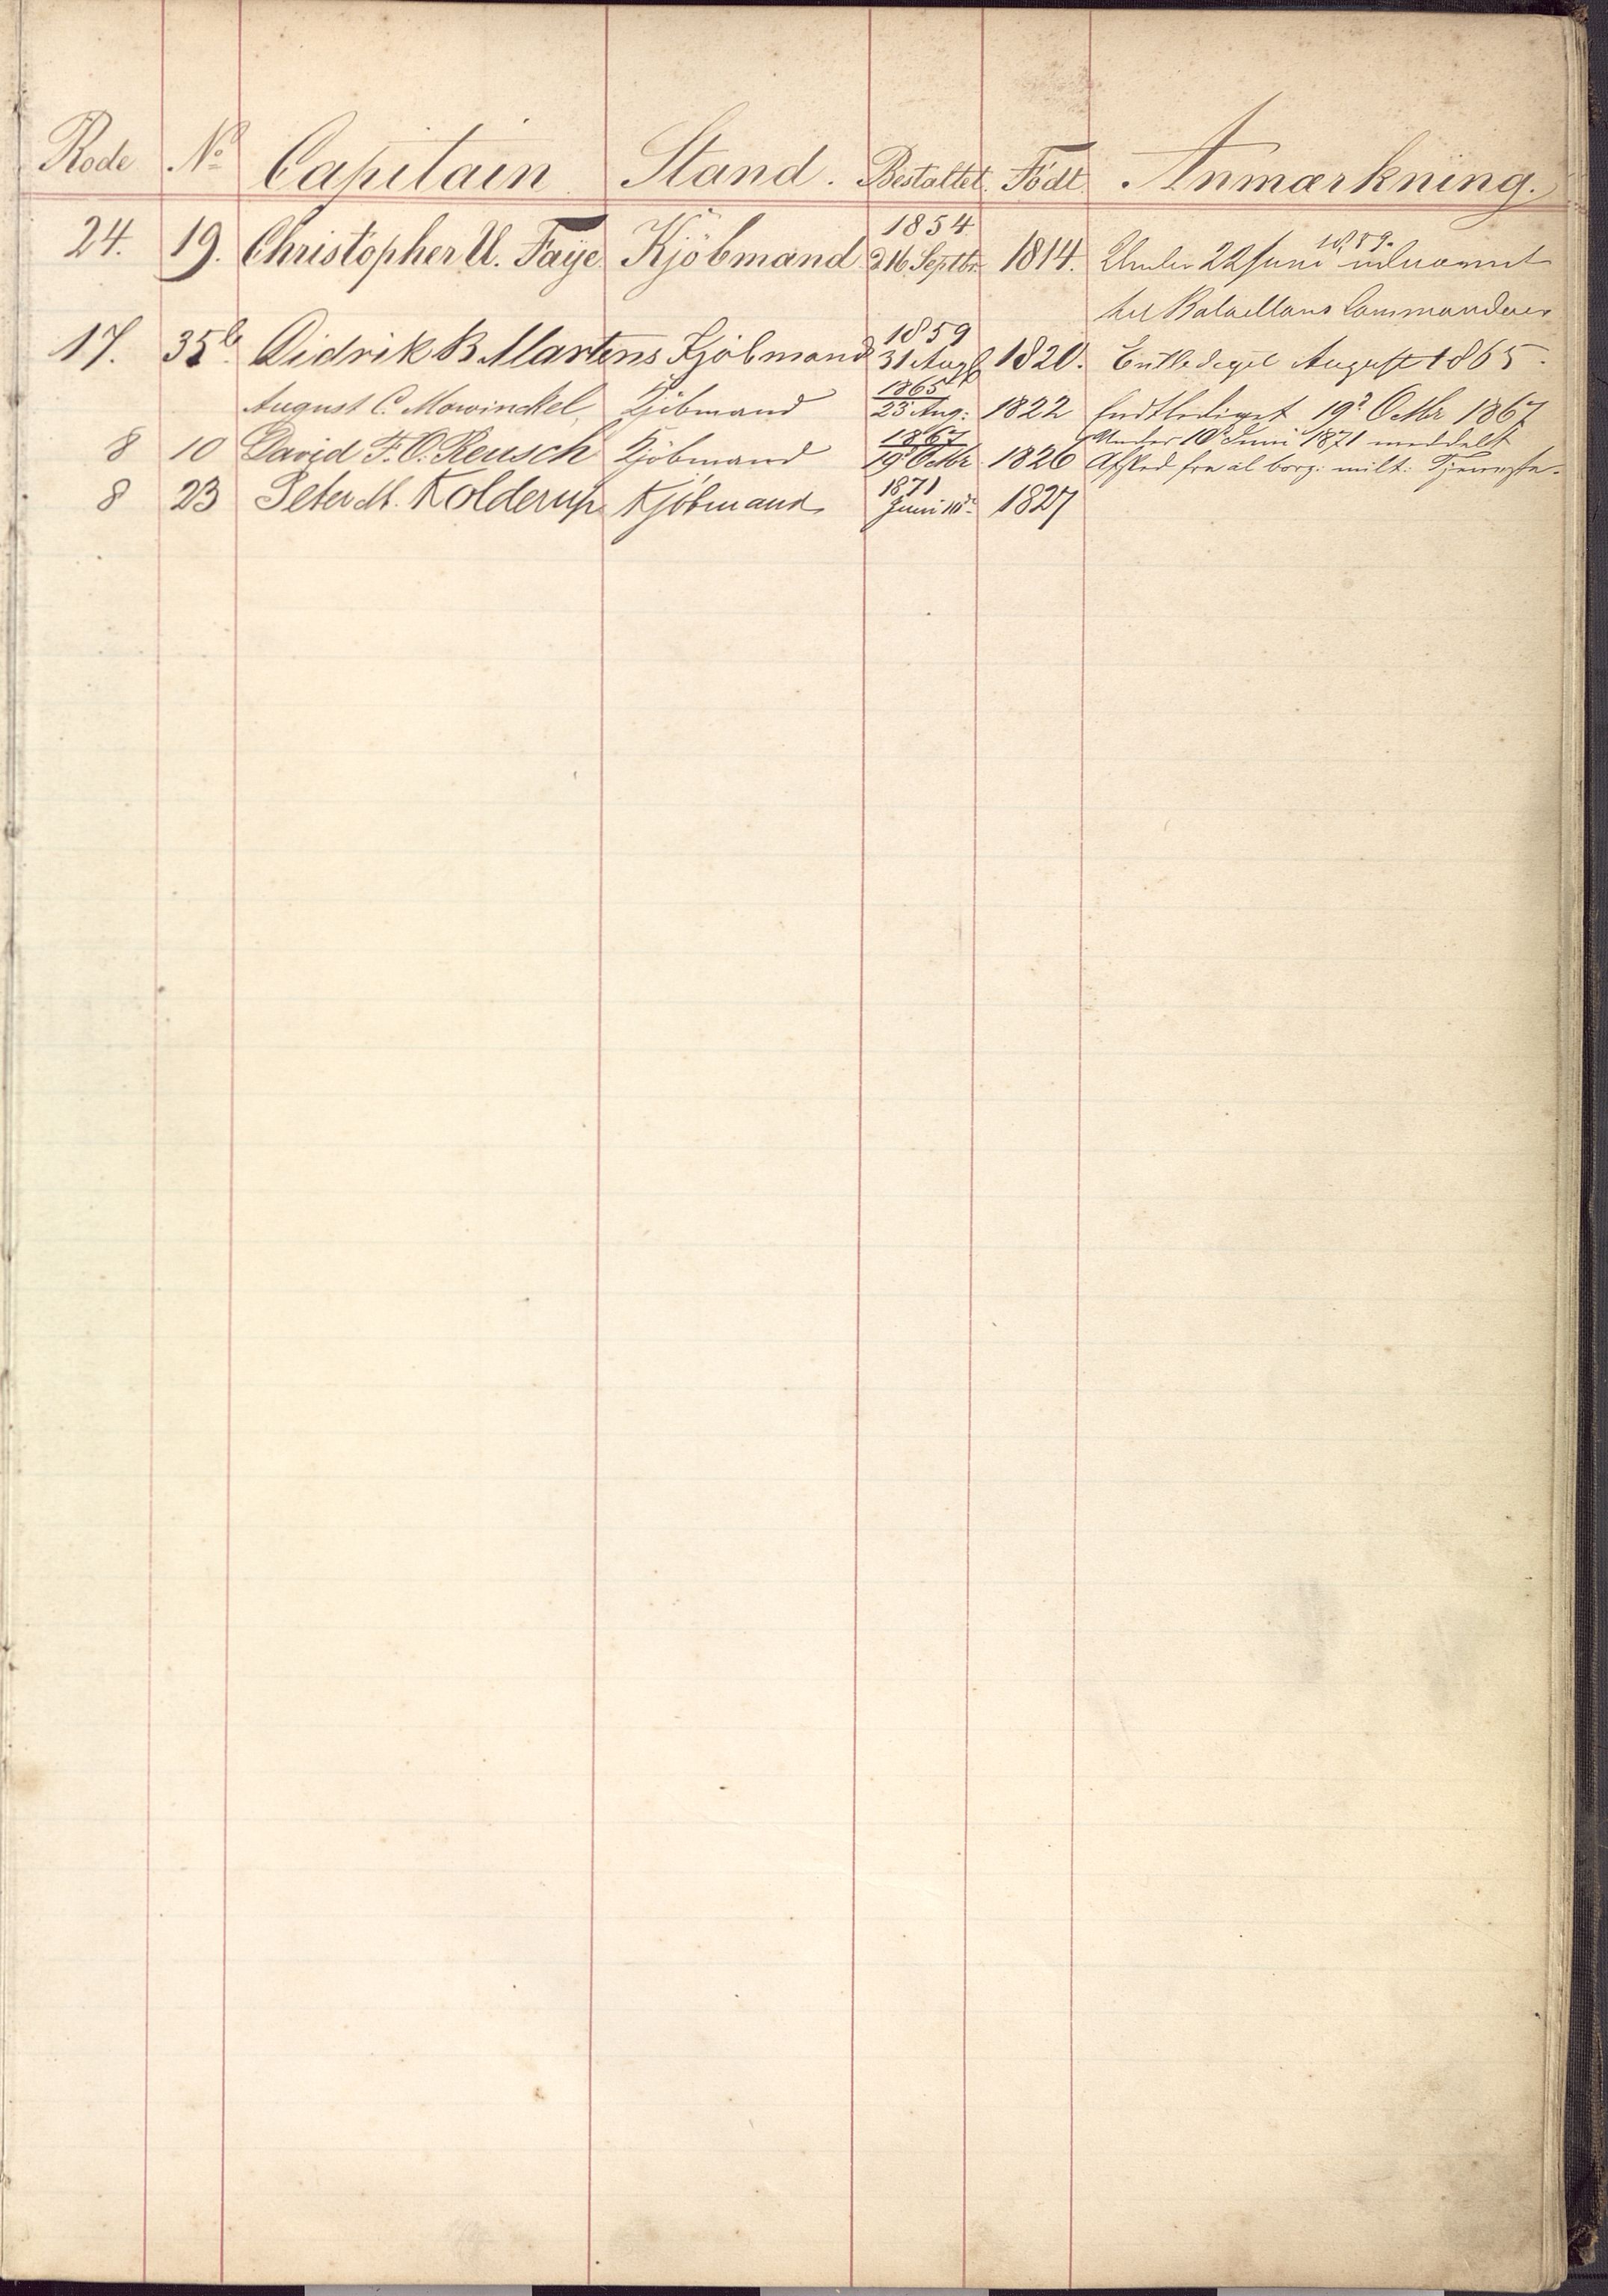 Rode No Capitain Stand. Bestaltet. Födt Anmærkning.
24. 19. Christopher U. Faÿe Kjöbmand 1854 16 Septbr. 1814. Under 22 Juni 1859. udnævnt
til Bataillons Commandeur
17. 35b. Didrik B. Martens Kjöbmand 1859 31 Augt 1820. Entlediget August 1865.
August C. Mowinckel, Kjöbmand 1865 23 Aug: 1822 Endtlediget 19d Octbr 1867
8 10 David F. O. Reusch Kjöbmand 1867 19d Octbr 1826 Under 10d Juni 1871 meddelt
Afsked fra al borg: milt: Tjeneste.
8 23 Peter M. Kolderup Kjöbmand 1871 Juni 10de 1827